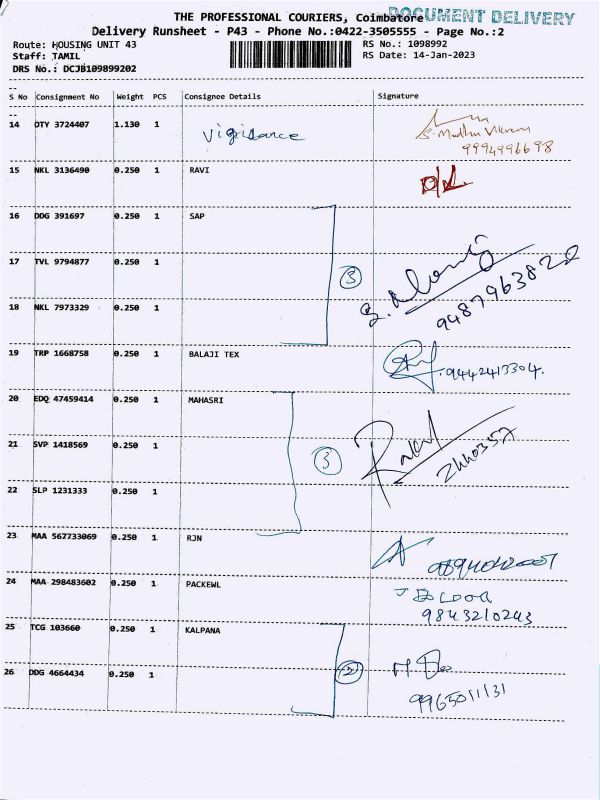 THE PROFESSIONAL COURIERS, Coimbatore
DOCUMENT DELIVERY
Delivery Runsheet - P43 - Phone No.:0422-3505555 - Page No.:2
Route: HOUSING UNIT 43
RS No.: 1098992
Staff: TAMIL
RS Date: 14-Jan-2023
DRS No.: DCJB109899202
S No Consignment No Weight PCS Consignee Details Signature
14 OTY 3724407 1.130 1 Vigisance S. Madhu Vikram
9994996698
15 NKL 3136490 0.250 1 RAVI
16 DDG 391697 0.250 1 SAP
17 TVL 9794877 0.250 1
3
9487963822
18 NKL 7973329 0.250 1
19 TRP 1668758 0.250 1 BALAJI TEX 9442413304.
20 EDQ 47459414 0.250 1 MAHASRI
21 SVP 1418569 0.250 1
3
2440357
22 SLP 1231333 0.250 1
23 MAA 567733069 0.250 1 RJN
24 MAA 298483602 0.250 1 PACKEWL
9843210243
25 TCG 103660 0.250 1 KALPANA
26 DDG 4664434 0.250 1 2
9965011131